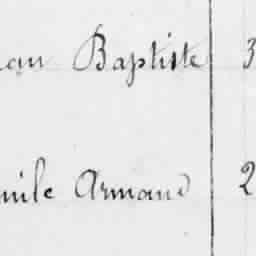 ean Baptiste 3
mile Armand 2